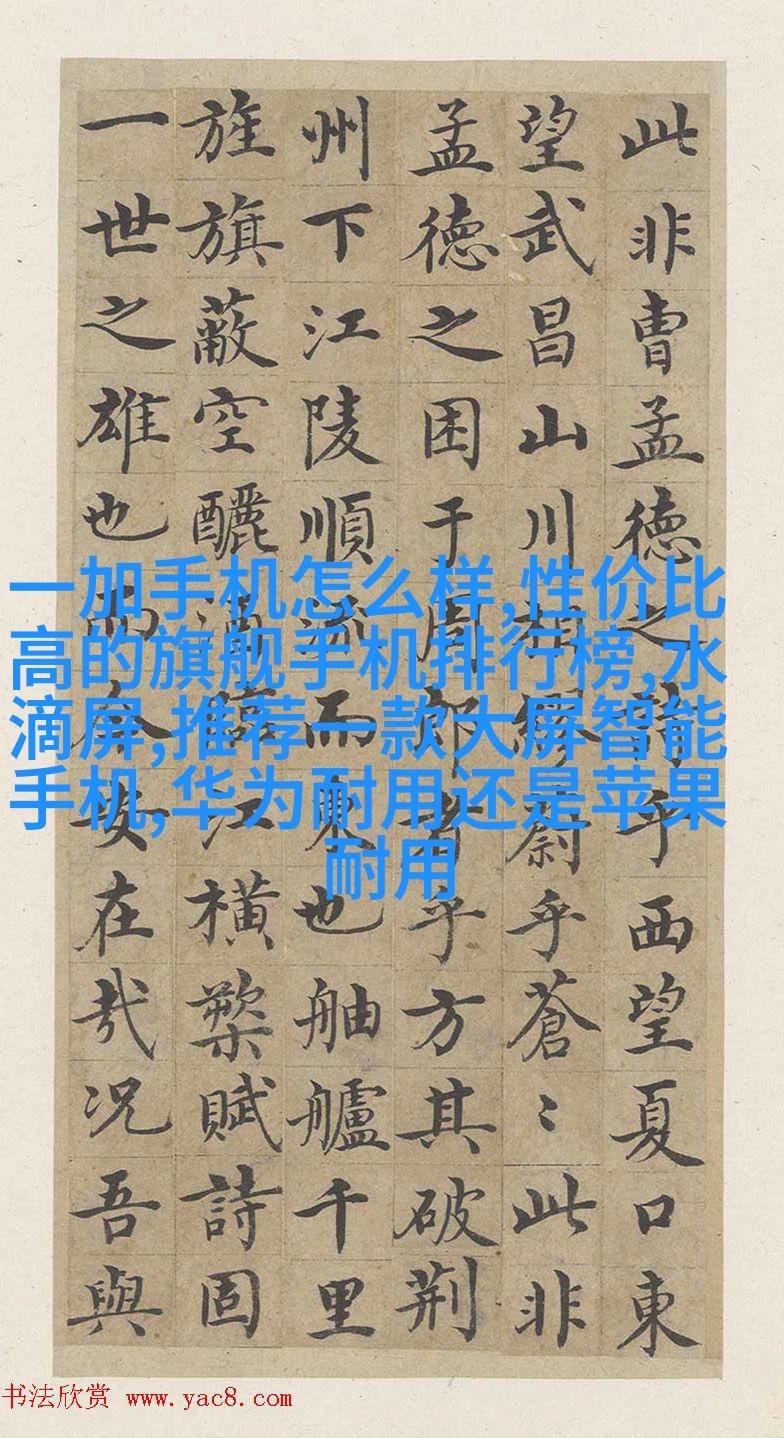 此非曹孟德之詩乎西望夏口東
望武昌山川相繆蔚乎蒼〻此非
孟德之困于周郎者乎方其破荆
州下江陵順流而東也舳艫千里
旌旗蔽空釃酒臨江橫槊賦詩固
一世之雄也而今安在哉况吾與
一加手机怎么样,性价比
高的旗舰手机排行榜,水
滴屏,推荐一款大屏智能
手机,华为耐用还是苹果
耐用
书法欣赏 www.yac8.com